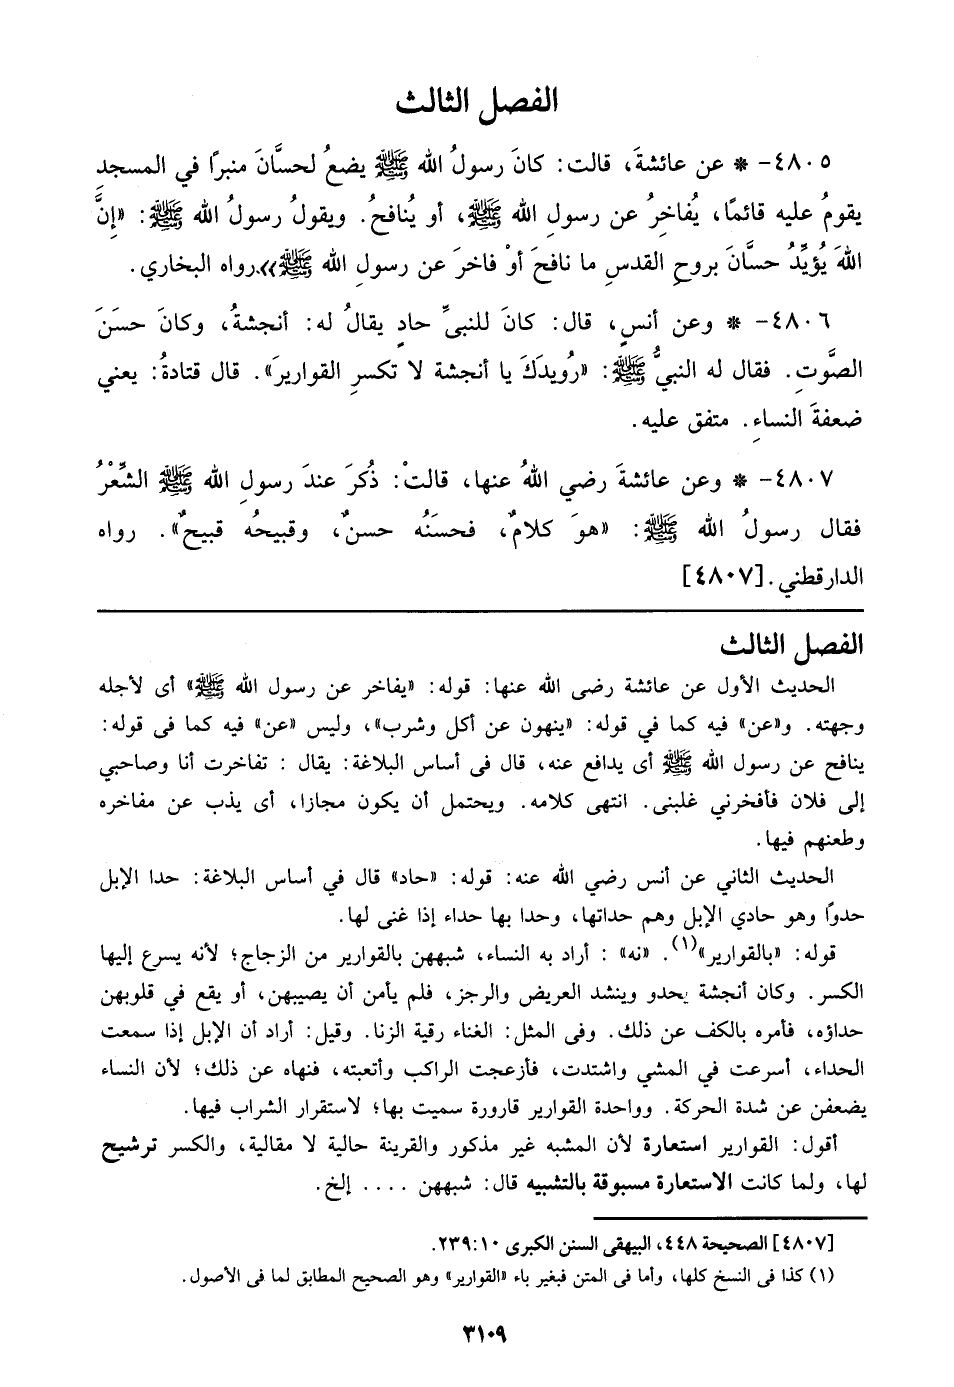 الفصل الثالث
٤٨٠٥- * عن عائشةَ، قالت: كانَ رسولُ الله ﷺ يضعُ لحسَّانَ منبرًا في المسجدِ
يقومُ عليه قائمًا، يُفاخِرُ عن رسولِ الله ﷺ، أو يُنافحُ. ويقولُ رسولُ الله ﷺ: «إنَّ
اللهَ يُؤيِّدُ حسَّانَ بروحِ القدسِ ما نافحَ أوْ فاخرَ عن رسولِ الله ﷺ». رواه البخاري.
٤٨٠٦- * وعن أنسٍ، قال: كانَ للنبيِّ حادٍ يقالُ له: أنجشةُ، وكانَ حسَنَ
الصَّوتِ. فقال له النبيُّ ﷺ: «رُويدَكَ يا أنجشة لا تكسرِ القواريرَ». قال قتادةُ: يعني
ضعفةَ النساءِ. متفق عليه.
٤٨٠٧- * وعن عائشةَ رضي اللهُ عنها، قالتْ: ذُكرَ عندَ رسولِ الله ﷺ الشِّعْرُ
فقال رسولُ الله ﷺ: «هوَ كلامٌ، فحسَنُه حسنٌ، وقبيحُه قبيحٌ». رواه
الدارقطني. [٤٨٠٧]
الفصل الثالث
الحديث الأول عن عائشة رضى الله عنها: قوله: «يفاخر عن رسول الله ﷺ» أى لأجله
وجهته. و«عن» فيه كما في قوله: «ينهون عن أكل وشرب»، وليس «عن» فيه كما فى قوله:
ينافح عن رسول الله ﷺ أى يدافع عنه، قال فى أساس البلاغة: يقال : تفاخرت أنا وصاحبي
إلى فلان فأفخرني غلبنى. انتهى كلامه. ويحتمل أن يكون مجازا، أى يذب عن مفاخره
وطعنهم فيها.
الحديث الثاني عن أنس رضي الله عنه: قوله: «حاد» قال في أساس البلاغة: حدا الإبل
حدوًا وهو حادي الإبل وهم حداتها، وحدا بها حداء إذا غنى لها.
قوله: «بالقوارير»(١). «نه» : أراد به النساء، شبههن بالقوارير من الزجاج؛ لأنه يسرع إليها
الكسر. وكان أنجشة يحدو وينشد العريض والرجز، فلم يأمن أن يصيبهن، أو يقع في قلوبهن
حداؤه، فأمره بالكف عن ذلك. وفى المثل: الغناء رقية الزنا. وقيل: أراد أن الإبل إذا سمعت
الحداء، أسرعت في المشي واشتدت، فأزعجت الراكب وأتعبته، فنهاه عن ذلك؛ لأن النساء
يضعفن عن شدة الحركة. وواحدة القوارير قارورة سميت بها؛ لاستقرار الشراب فيها.
أقول: القوارير استعارة لأن المشبه غير مذكور والقرينة حالية لا مقالية، والكسر ترشيح
لها، ولما كانت الاستعارة مسبوقة بالتشبيه قال: شبههن .... إلخ.
[٤٨٠٧] الصحيحة ٤٤٨، البيهقى السنن الكبرى ٢٣٩:١٠.
(١) كذا فى النسخ كلها، وأما فى المتن فبغير باء «القوارير» وهو الصحيح المطابق لما فى الأصول.
٣١٠٩